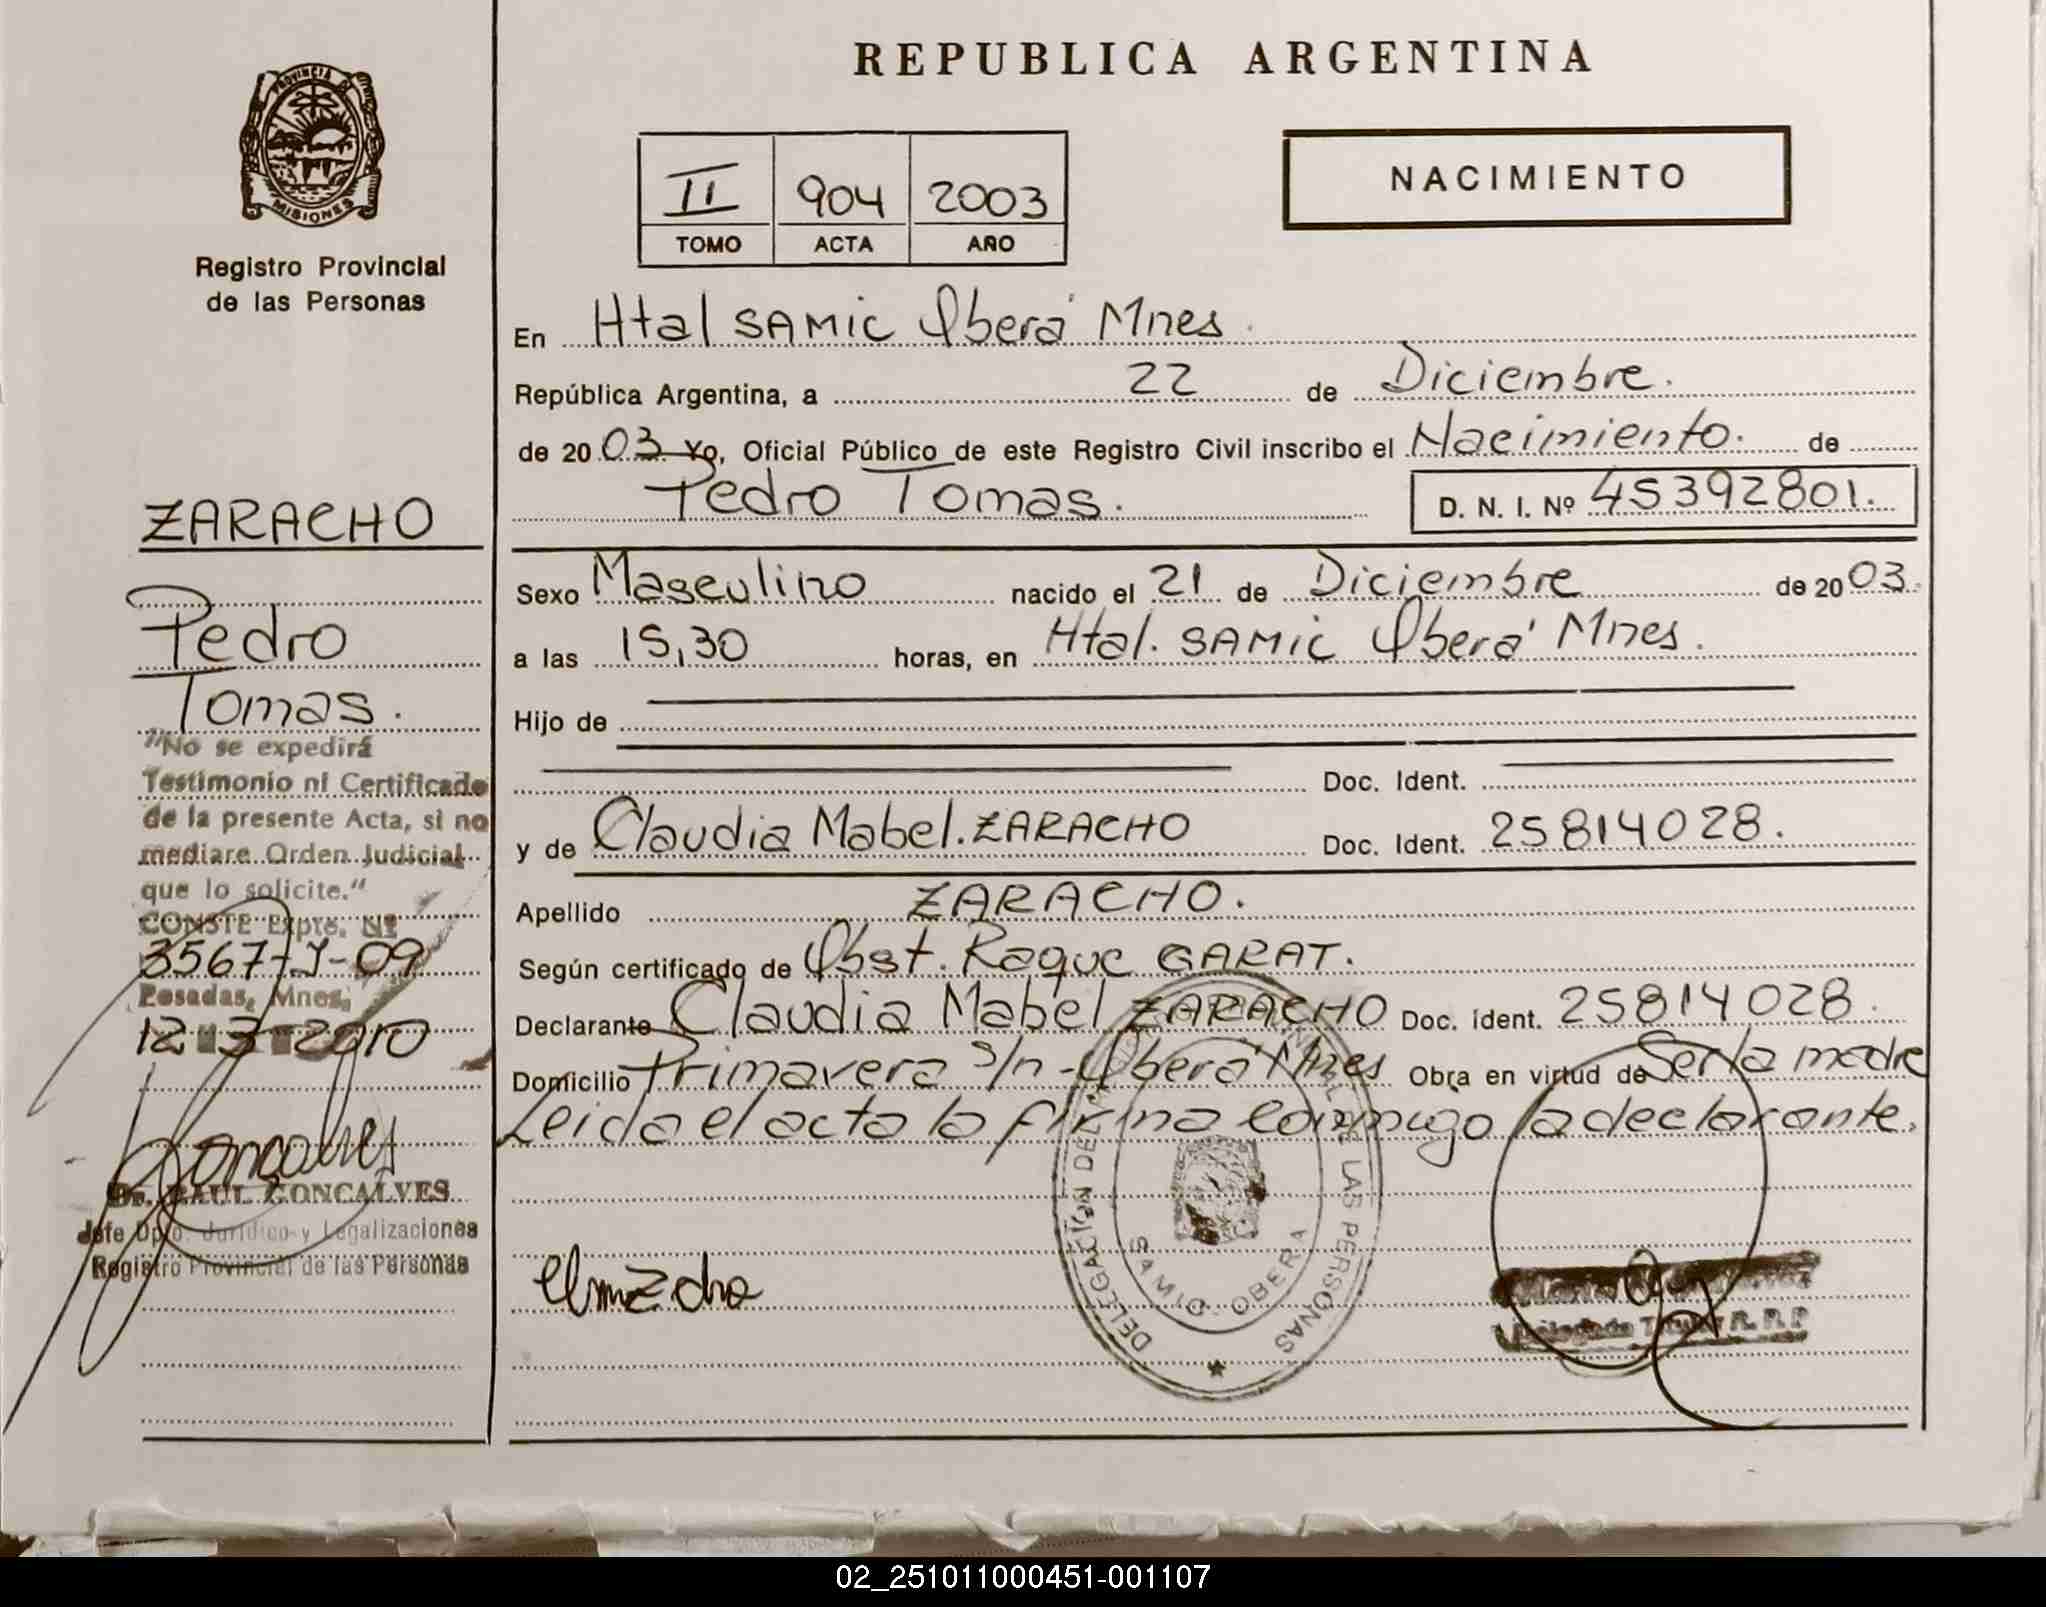 PROVINCIA DE
MISIONES
Registro Provincial
de las Personas
ZARACHO
Pedro
Tomas.
"No se expedirá
Testimonio ni Certificado
de la presente Acta, si no
mediare Orden Judicial
que lo solicite."
CONSTE Expte. Nº
3567-J-09
Posadas, Mnes,
12 3 2010
Goncalves
Dr. RAUL GONCALVES
Jefe Dpto. Jurídico y Legalizaciones
Registro Provincial de las Personas
REPUBLICA ARGENTINA
II 904 2003
TOMO ACTA AÑO
NACIMIENTO
En Htal SAMIC Oberá Mnes.
República Argentina, a 22 de Diciembre.
de 2003 Yo, Oficial Público de este Registro Civil inscribo el Nacimiento. de
Pedro Tomas. D. N. I. Nº 45392801.
Sexo Masculino nacido el 21 de Diciembre de 2003.
a las 15,30 horas, en Htal. SAMIC Oberá Mnes.
Hijo de
Doc. Ident.
y de Claudia Mabel. ZARACHO Doc. Ident. 25814028.
Apellido ZARACHO.
Según certificado de Obst. Roque GARAT.
Declarante Claudia Mabel ZARACHO Doc. Ident. 25814028.
Domicilio Primavera s/n - Oberá Mnes Obra en virtud de Ser la madre
Leida el acta la firma conmigo la declarante.
DELEGACION DE LAS PERSONAS
SAMIC - OBERA
Titular R. P. P
02_251011000451-001107